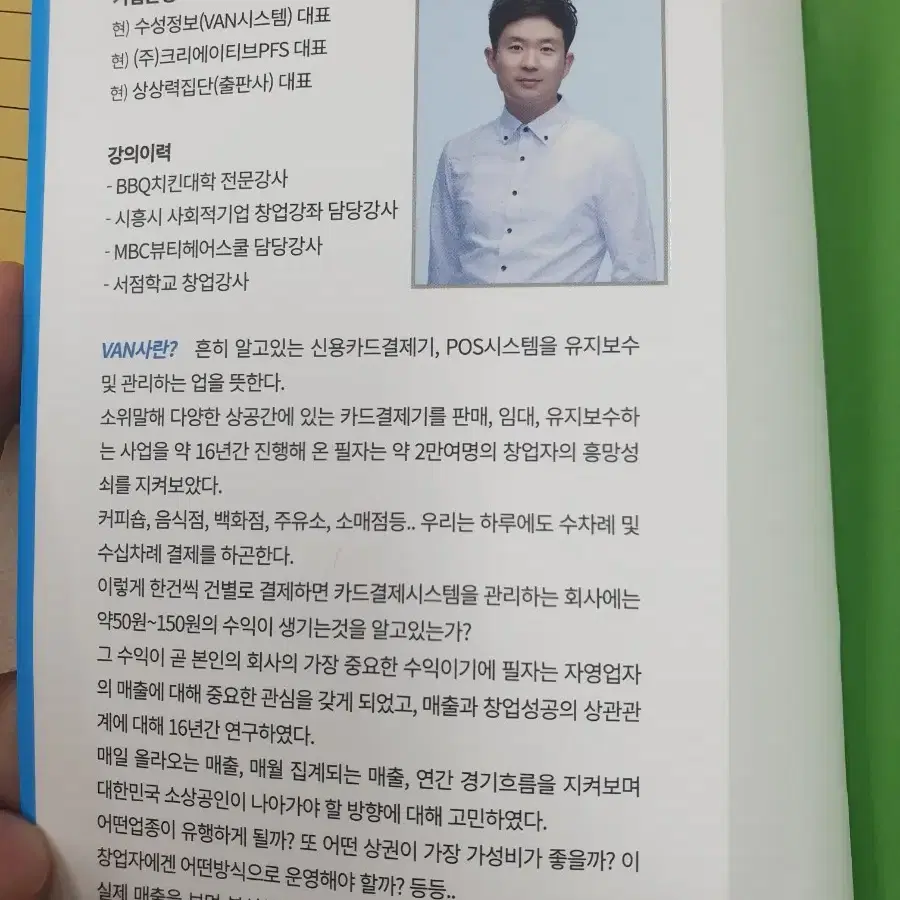 현) 수성정보(VAN시스템) 대표
현) (주)크리에이티브PFS 대표
현) 상상력집단(출판사) 대표
강의이력
- BBQ치킨대학 전문강사
- 시흥시 사회적기업 창업강좌 담당강사
- MBC뷰티헤어스쿨 담당강사
- 서점학교 창업강사
VAN사란? 흔히 알고있는 신용카드결제기, POS시스템을 유지보수
및 관리하는 업을 뜻한다.
소위말해 다양한 상공간에 있는 카드결제기를 판매, 임대, 유지보수하
는 사업을 약 16년간 진행해 온 필자는 약 2만여명의 창업자의 흥망성
쇠를 지켜보았다.
커피숍, 음식점, 백화점, 주유소, 소매점등.. 우리는 하루에도 수차례 및
수십차례 결제를 하곤한다.
이렇게 한건씩 건별로 결제하면 카드결제시스템을 관리하는 회사에는
약50원~150원의 수익이 생기는것을 알고있는가?
그 수익이 곧 본인의 회사의 가장 중요한 수익이기에 필자는 자영업자
의 매출에 대해 중요한 관심을 갖게 되었고, 매출과 창업성공의 상관관
계에 대해 16년간 연구하였다.
매일 올라오는 매출, 매월 집계되는 매출, 연간 경기흐름을 지켜보며
대한민국 소상공인이 나아가야 할 방향에 대해 고민하였다.
어떤업종이 유행하게 될까? 또 어떤 상권이 가장 가성비가 좋을까? 이
창업자에겐 어떤방식으로 운영해야 할까? 등등..
실제 매출을 보며